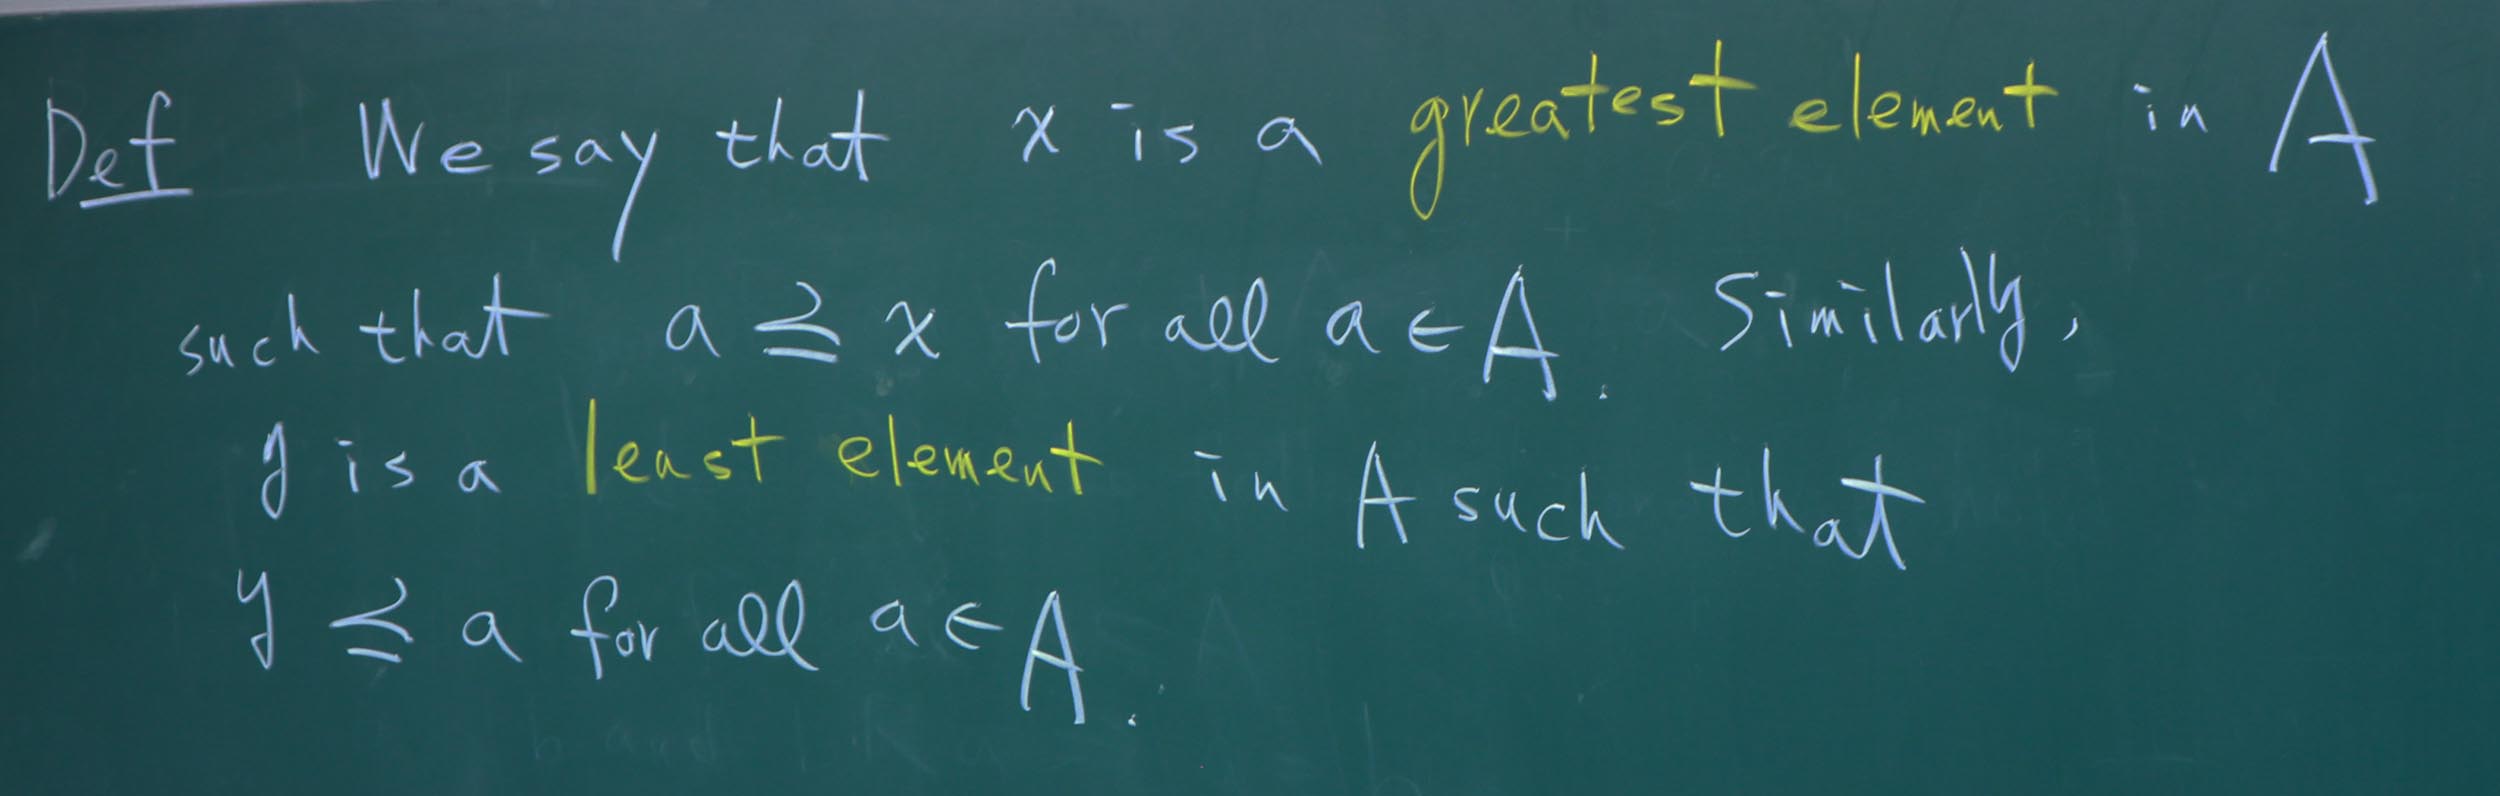 Def We say that x is a greatest element in A
such that a ⪯ x for all a ∈ A. Similarly,
y is a least element in A such that
y ⪯ a for all a ∈ A.